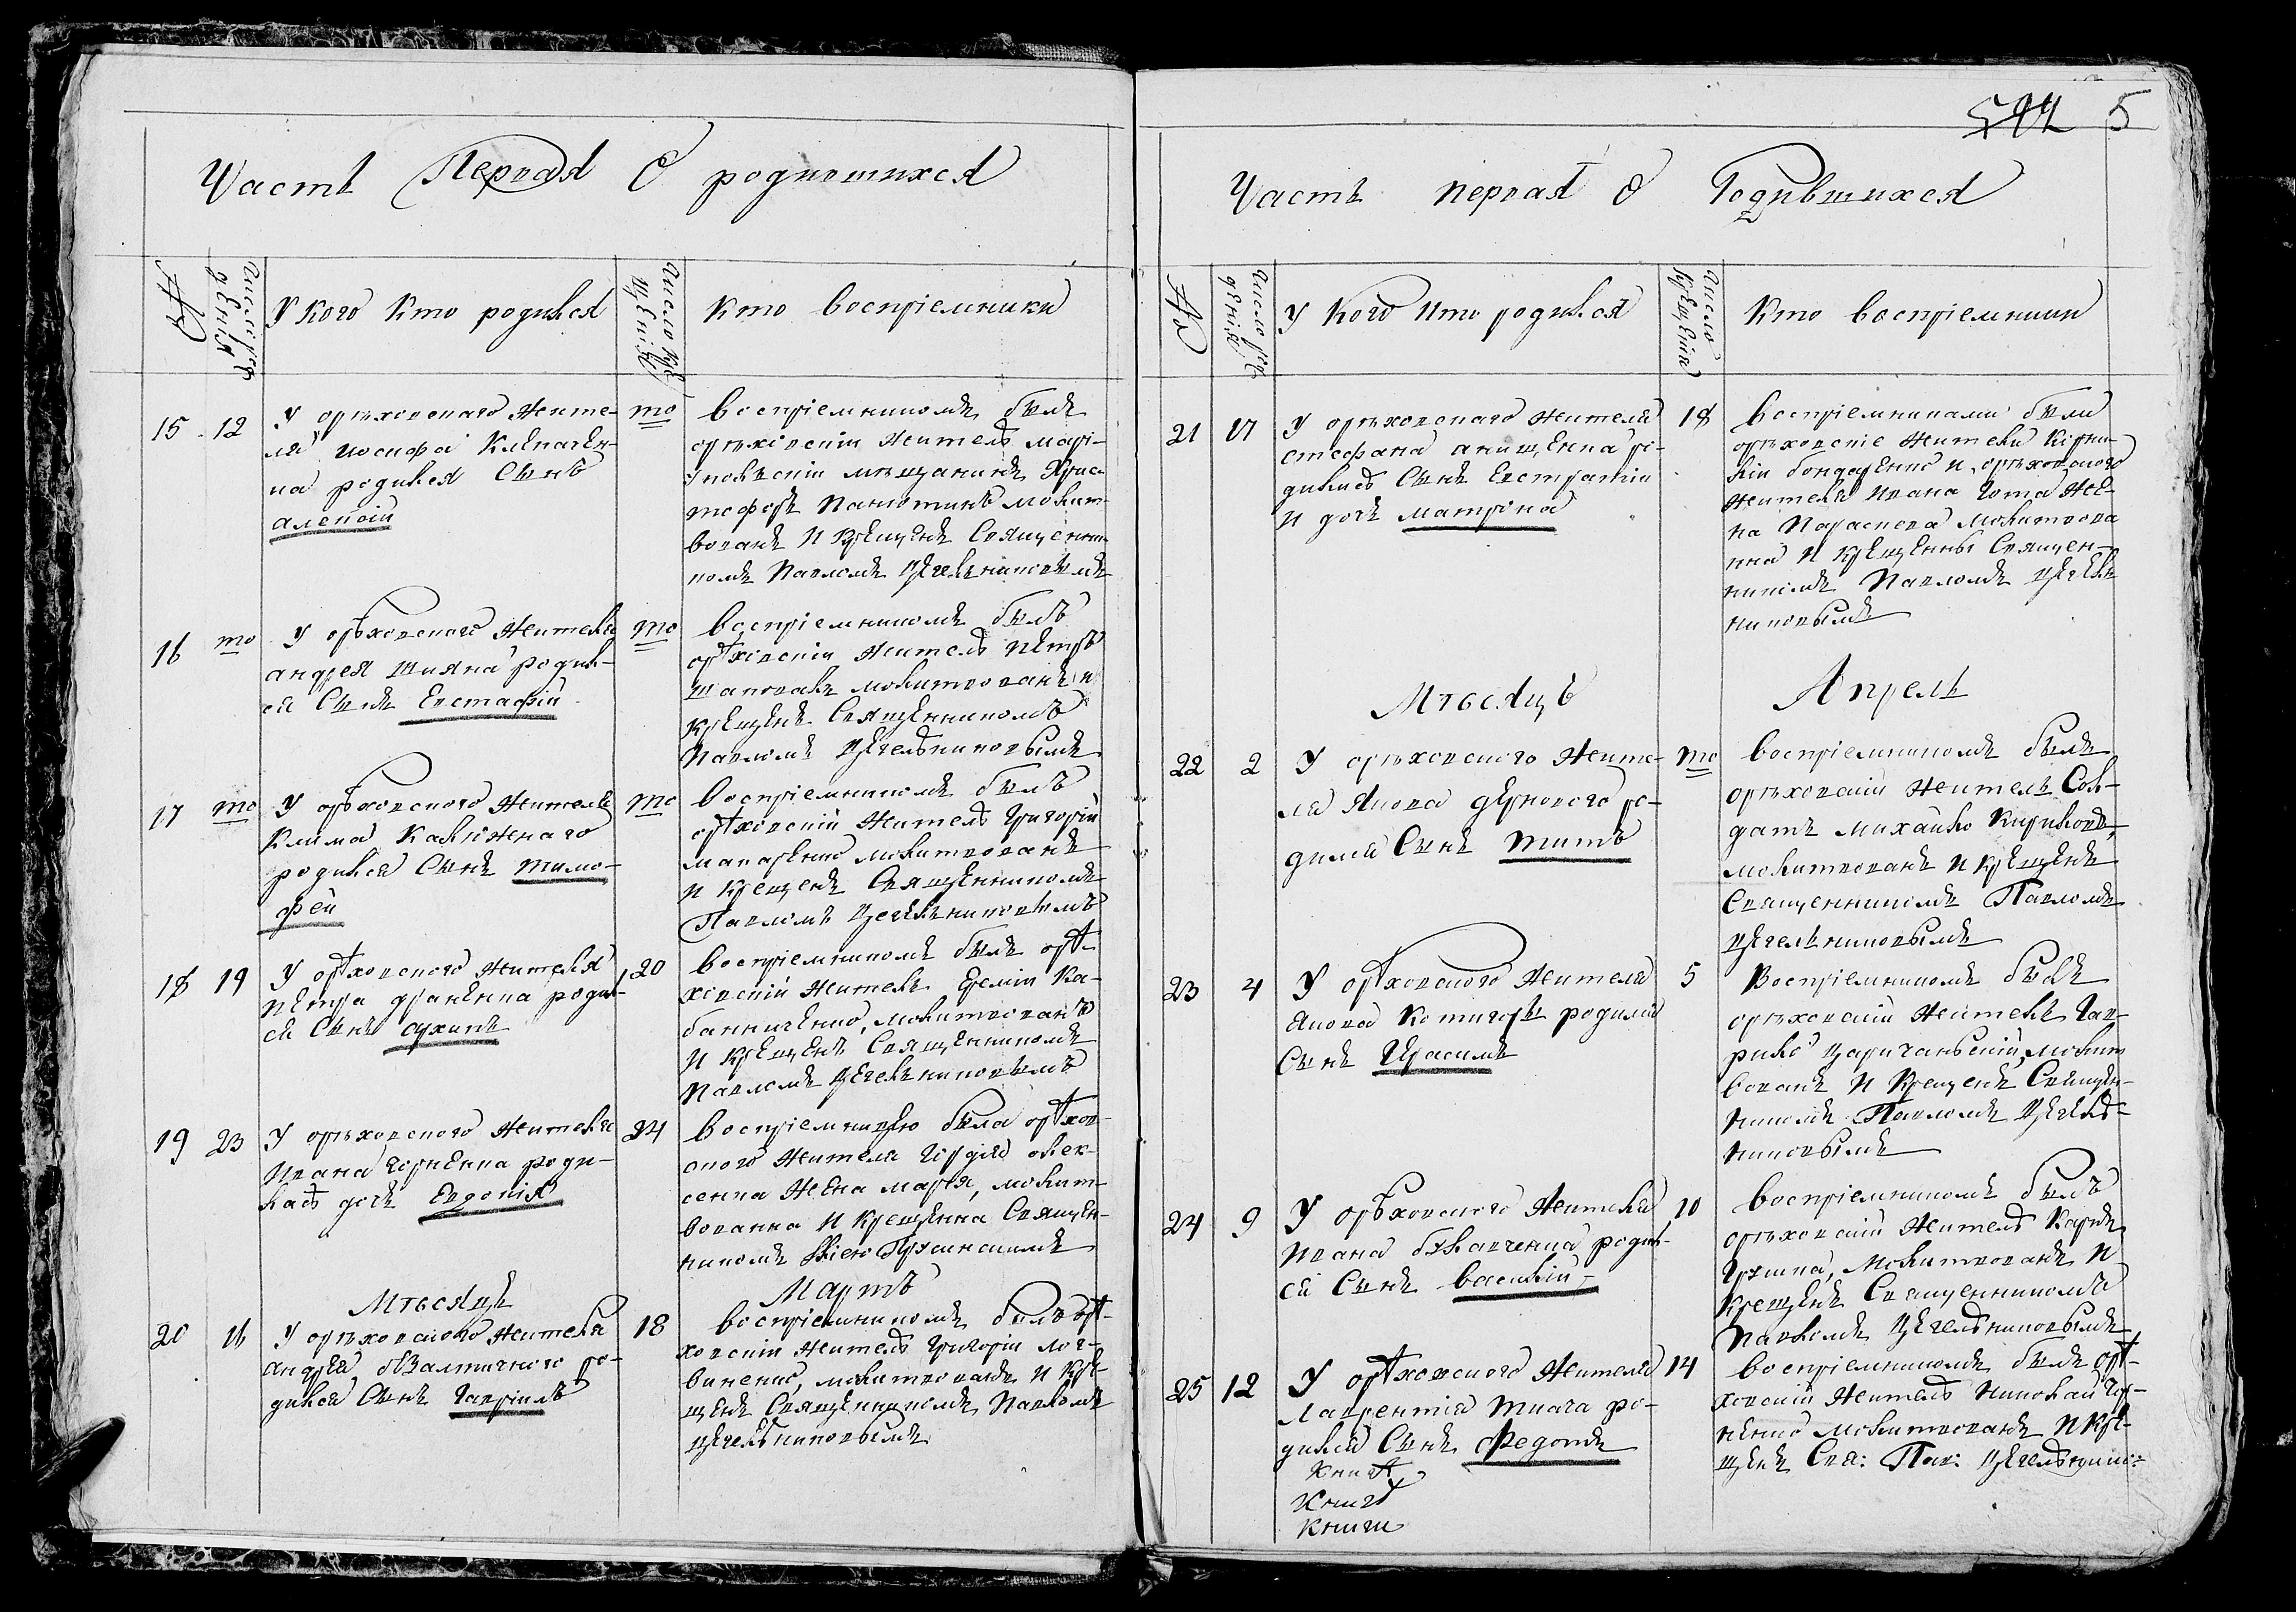 Часть Первая О родившихся
№
Число рож
денія
У кого кто родился
Число кре
щенія
Кто воспріемники
15
12
У орѣховского жите-
ля Иосифа
на родился сынъ
Алексій
то
воспріемникомъ былъ
орѣховскій житель марі-
упольскій мѣщанинъ Хрис
тофоръ молит
вованъ и крещенъ священни
комъ Павломъ Цегельниковымъ
16
то
У орѣховского жителя
андрея Шияна родил-
ся сынъ Евстафій
то
воспріемникомъ былъ
орѣховскій житель Петръ
шаповалъ молитвованъ и
крещенъ Священникомъ
Павломъ Цегельниковымъ
17
то
У орѣховского жителя
Клима Калюжнаго
родился сынъ тимо-
фей
то
воспріемникомъ былъ
орѣховскій житель Григорій
макаренко молитвованъ
и крещенъ Священникомъ
Павломъ Цегельниковымъ
18
19
У орѣховского жителя
Петра родил-
ся сынъ архипъ
20
воспріемникомъ былъ орѣ-
ховскій житель Еремій Ка-
молитвованъ
и крещенъ Священникомъ
Павломъ Цегельниковымъ
19
23
У орѣховского жителя
Ивана роди-
лась дочь Евдокія
24
воспріемницею была орѣхов-
ского жителя Гордія олек-
сенка жена марья, молит-
вованна и крещенна Священ-
никомъ
Мѣсяцъ Мартъ
20
16
У орѣховского жителя
Андрея ро-
дился сынъ Гавріилъ
18
воспріемникомъ былъ орѣ-
ховскій житель Григорій лог-
виненко, молитвованъ и кре-
щенъ Священникомъ Павломъ
Цегельниковымъ
5
Часть первая О Родившихся
№
Число рож
денія
У Кого Кто родился
Число
крещенія
Кто воспріемники
21
17
У орѣховского жителя
стефана анищенка ро-
дились сынъ Евстратій
и дочь матрона
18
воспріемниками были
орѣховскіе жители Корни-
лій бондаренко и орѣховского
жителя Ивана жѣ-
на Параскева молитвова
нна и крещенны Священ-
никомъ Павломъ Цегель
никовымъ
Мѣсяцъ Апрель
22
2
У орѣховского жите-
ля Якова дернового ро-
дился сынъ титъ
то
воспріемникомъ былъ
орѣховскій житель Сол-
датъ михайло Кириловъ,
молитвованъ и крещенъ
Священникомъ Павломъ
Цегельниковымъ
23
4
У орѣховского жителя
Якова родился
сынъ Герасимъ
5
Воспріемникомъ былъ
орѣховскій житель Гав-
рило Царичанскій, молит
вованъ и крещенъ Священ-
никомъ Павломъ Цегель-
никовымъ
24
9
У орѣховского жителя
Ивана родил-
ся сынъ василій
10
воспріемникомъ былъ
орѣховскій житель Карпъ
молитвованъ и
крещенъ Священникомъ
Павломъ Цегельниковымъ
25
12
У орѣховского жителя
Лаврентія ткача ро-
дился сынъ Федотъ
14
воспріемникомъ былъ орѣ-
ховскій житель Николай
молитвованъ и кре-
щенъ Свя: Пав: Цегельник:
Книгѣ
Книги